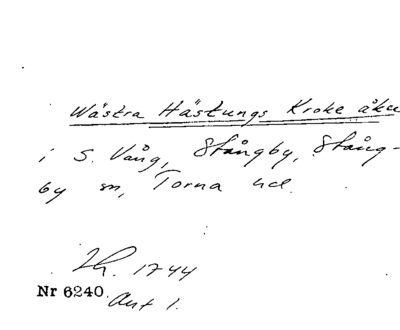 Wästra Hästungs Kroke åker
i S. Vång, Stångby, Stång-
by sn, Torna hd.
Lh. 1744
Nr 6240. Akt 1.